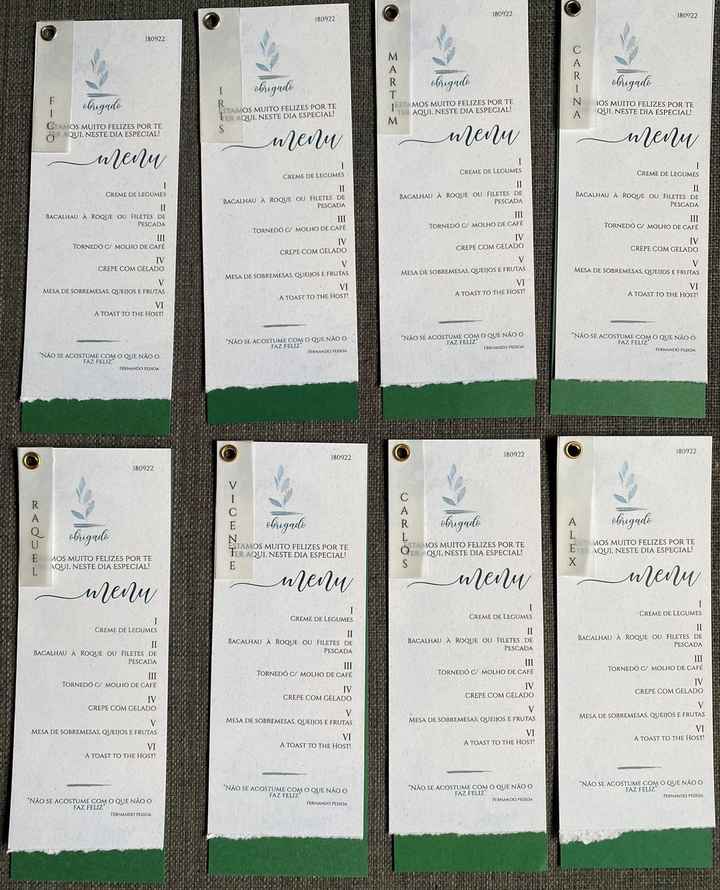 FIGO
180922
obrigado
ESTAMOS MUITO FELIZES POR TE
TER AQUI, NESTE DIA ESPECIAL!
menu
I
CREME DE LEGUMES
II
BACALHAU À ROQUE OU FILETES DE
PESCADA
III
TORNEDÓ C/ MOLHO DE CAFÉ
IV
CREPE COM GELADO
V
MESA DE SOBREMESAS, QUEIJOS E FRUTAS
VI
A TOAST TO THE HOST!
"NÃO SE ACOSTUME COM O QUE NÃO O
FAZ FELIZ"
FERNANDO PESSOA
IRIS
180922
obrigado
ESTAMOS MUITO FELIZES POR TE
TER AQUI, NESTE DIA ESPECIAL!
menu
I
CREME DE LEGUMES
II
BACALHAU À ROQUE OU FILETES DE
PESCADA
III
TORNEDÓ C/ MOLHO DE CAFÉ
IV
CREPE COM GELADO
V
MESA DE SOBREMESAS, QUEIJOS E FRUTAS
VI
A TOAST TO THE HOST!
"NÃO SE ACOSTUME COM O QUE NÃO O
FAZ FELIZ"
FERNANDO PESSOA
MARTIM
180922
obrigado
ESTAMOS MUITO FELIZES POR TE
TER AQUI, NESTE DIA ESPECIAL!
menu
I
CREME DE LEGUMES
II
BACALHAU À ROQUE OU FILETES DE
PESCADA
III
TORNEDÓ C/ MOLHO DE CAFÉ
IV
CREPE COM GELADO
V
MESA DE SOBREMESAS, QUEIJOS E FRUTAS
VI
A TOAST TO THE HOST!
"NÃO SE ACOSTUME COM O QUE NÃO O
FAZ FELIZ"
FERNANDO PESSOA
CARINA
180922
obrigado
ESTAMOS MUITO FELIZES POR TE
TER AQUI, NESTE DIA ESPECIAL!
menu
I
CREME DE LEGUMES
II
BACALHAU À ROQUE OU FILETES DE
PESCADA
III
TORNEDÓ C/ MOLHO DE CAFÉ
IV
CREPE COM GELADO
V
MESA DE SOBREMESAS, QUEIJOS E FRUTAS
VI
A TOAST TO THE HOST!
"NÃO SE ACOSTUME COM O QUE NÃO O
FAZ FELIZ"
FERNANDO PESSOA
RAQUEL
180922
obrigado
ESTAMOS MUITO FELIZES POR TE
TER AQUI, NESTE DIA ESPECIAL!
menu
I
CREME DE LEGUMES
II
BACALHAU À ROQUE OU FILETES DE
PESCADA
III
TORNEDÓ C/ MOLHO DE CAFÉ
IV
CREPE COM GELADO
V
MESA DE SOBREMESAS, QUEIJOS E FRUTAS
VI
A TOAST TO THE HOST!
"NÃO SE ACOSTUME COM O QUE NÃO O
FAZ FELIZ"
FERNANDO PESSOA
VICENTE
180922
obrigado
ESTAMOS MUITO FELIZES POR TE
TER AQUI, NESTE DIA ESPECIAL!
menu
I
CREME DE LEGUMES
II
BACALHAU À ROQUE OU FILETES DE
PESCADA
III
TORNEDÓ C/ MOLHO DE CAFÉ
IV
CREPE COM GELADO
V
MESA DE SOBREMESAS, QUEIJOS E FRUTAS
VI
A TOAST TO THE HOST!
"NÃO SE ACOSTUME COM O QUE NÃO O
FAZ FELIZ"
FERNANDO PESSOA
CARLOS
180922
obrigado
ESTAMOS MUITO FELIZES POR TE
TER AQUI, NESTE DIA ESPECIAL!
menu
I
CREME DE LEGUMES
II
BACALHAU À ROQUE OU FILETES DE
PESCADA
III
TORNEDÓ C/ MOLHO DE CAFÉ
IV
CREPE COM GELADO
V
MESA DE SOBREMESAS, QUEIJOS E FRUTAS
VI
A TOAST TO THE HOST!
"NÃO SE ACOSTUME COM O QUE NÃO O
FAZ FELIZ"
FERNANDO PESSOA
ALEX
180922
obrigado
ESTAMOS MUITO FELIZES POR TE
TER AQUI, NESTE DIA ESPECIAL!
menu
I
CREME DE LEGUMES
II
BACALHAU À ROQUE OU FILETES DE
PESCADA
III
TORNEDÓ C/ MOLHO DE CAFÉ
IV
CREPE COM GELADO
V
MESA DE SOBREMESAS, QUEIJOS E FRUTAS
VI
A TOAST TO THE HOST!
"NÃO SE ACOSTUME COM O QUE NÃO O
FAZ FELIZ"
FERNANDO PESSOA